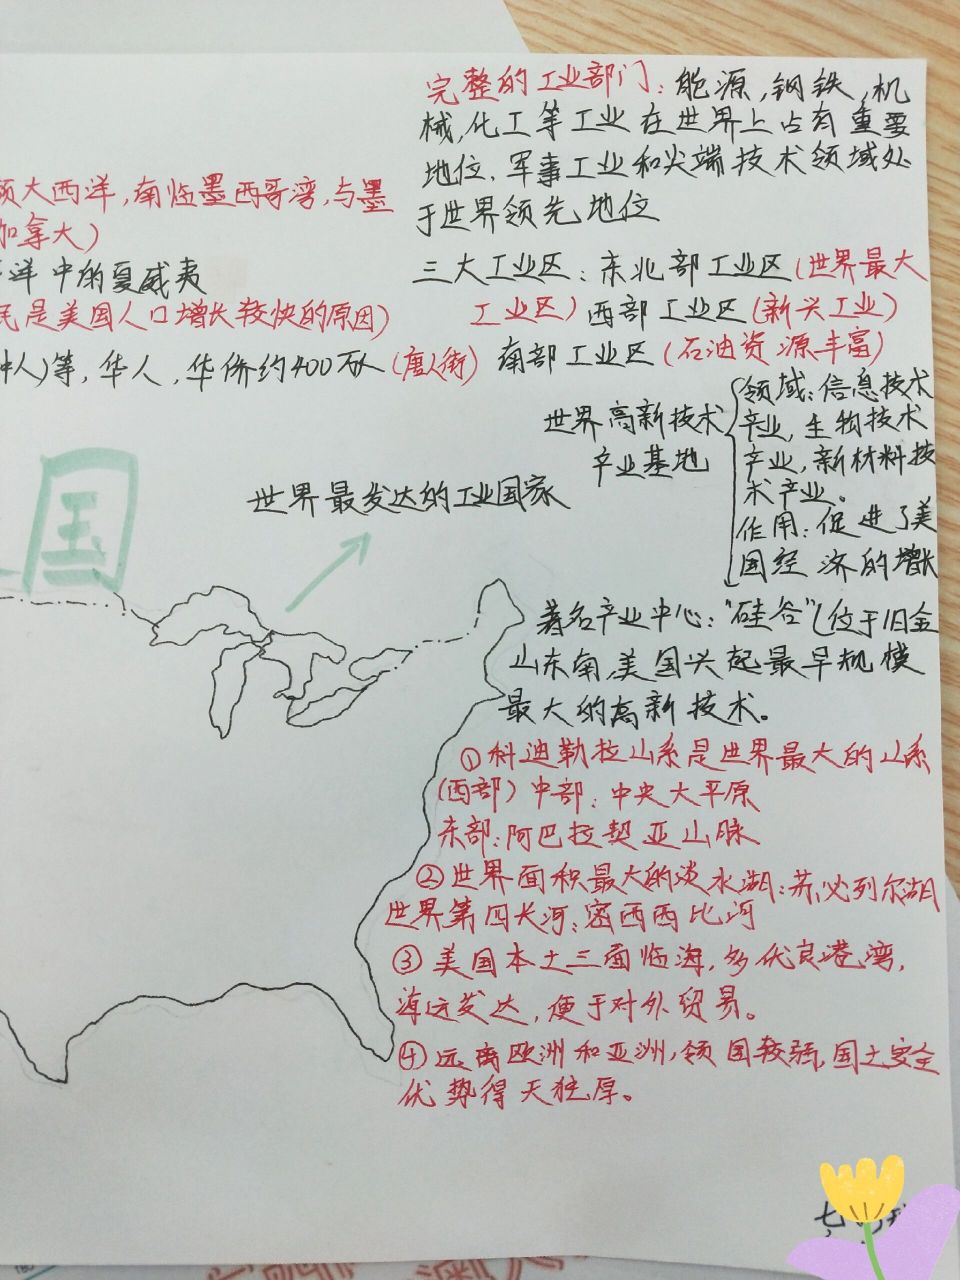 完整的工业部门：能源，钢铁，机
械，化工等工业在世界上占有重要
地位，军事工业和尖端技术领域处
于世界领先地位
大西洋，南临墨西哥湾，与墨
加拿大）
洋中的夏威夷
民是美国人口增长较快的原因）
中人）等，华人，华侨约400万人（唐人街）
三大工业区：东北部工业区（世界最大
工业区）西部工业区（新兴工业）
南部工业区（石油资源丰富）
世界高新技术
产业基地
领域：信息技术
产业，生物技术
产业，新材料技
术产业。
作用：促进了美
国经济的增长
国
世界最发达的工业国家
著名产业中心："硅谷"（位于旧金
山东南，美国兴起最早规模
最大的高新技术。
①科迪勒拉山系是世界最大的山系
（西部）中部：中央大平原
东部：阿巴拉契亚山脉
②世界面积最大的淡水湖：苏必列尔湖
世界第四长河：密西西比河
③美国本土三面临海，多优良港湾，
海运发达，便于对外贸易。
④远离欧洲和亚洲，领国较弱，国土安全
优势得天独厚。
七